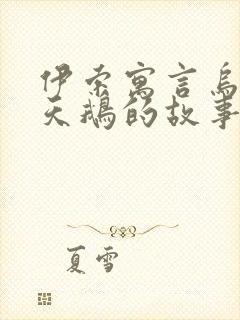 伊索寓言乌
天鹅的故事
夏雪